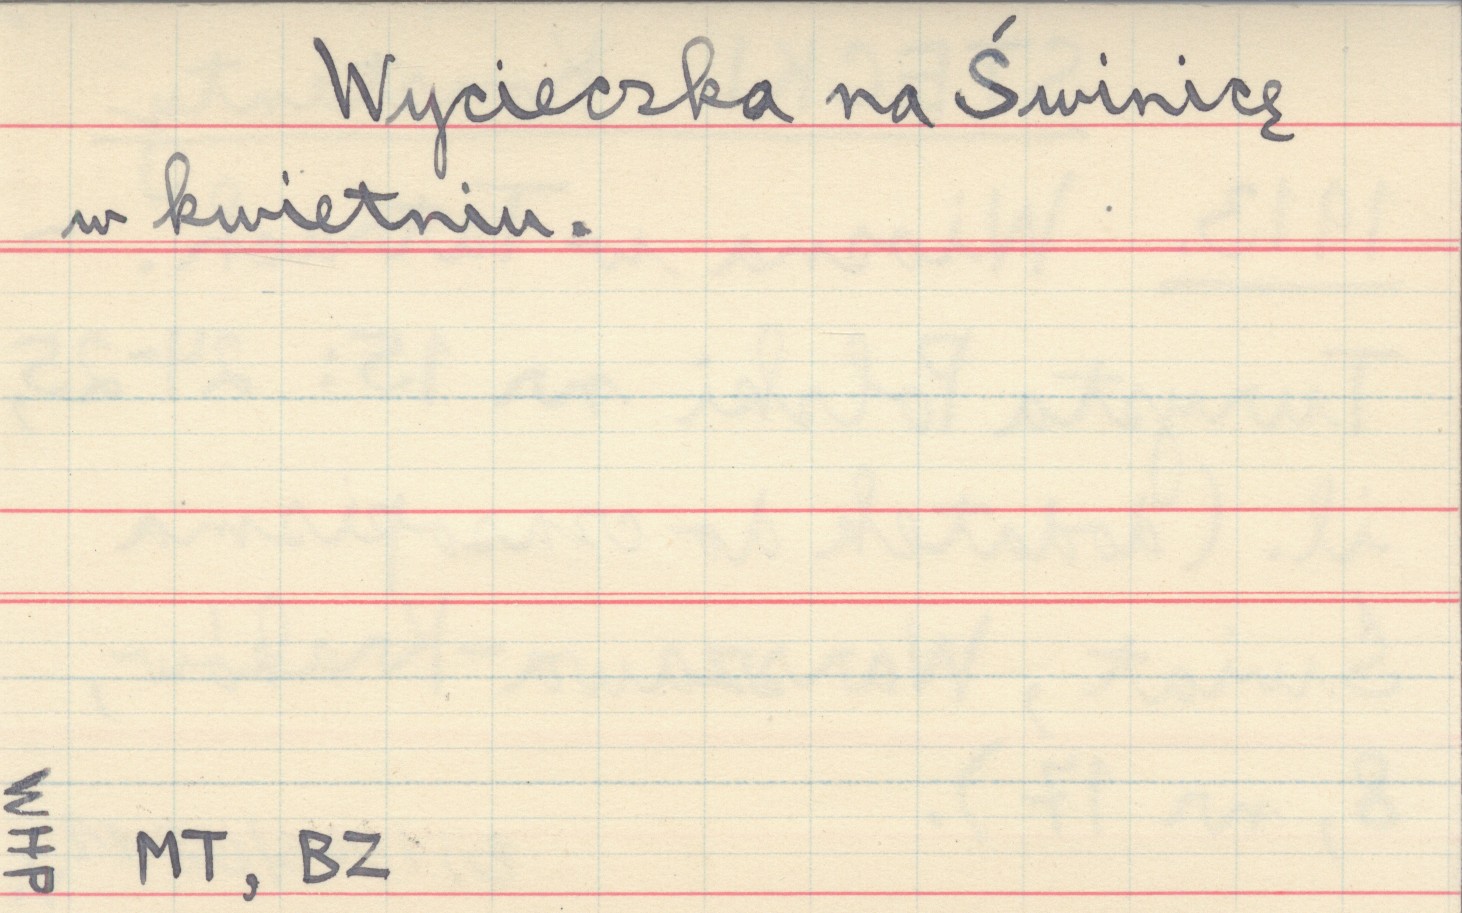 Wycieczka na Świnicę
w kwietniu.
WHP
MT, BZ